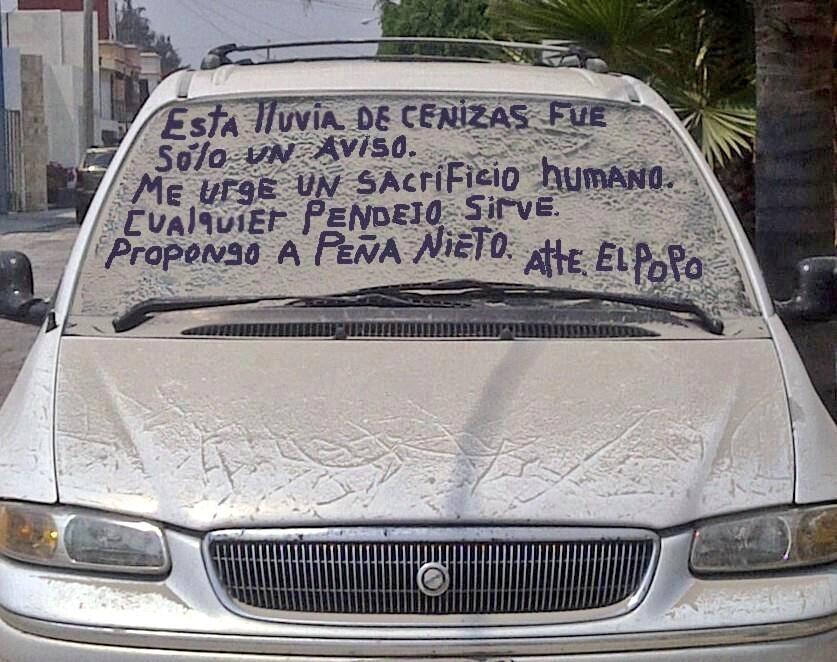 ESTA lluviA DE CENIZAS FUE
SÓlo UN AViSO.
ME UrgE UN SAcriFicio humANO.
CUAlquiEr PENDEJO SirVE.
PropoNgo A PEÑA NiETO. AttE. EL PoPo